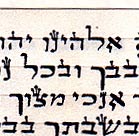 אלהינו יהו
בבך ובכל נ
אנכי מצוך
בשבתך בב